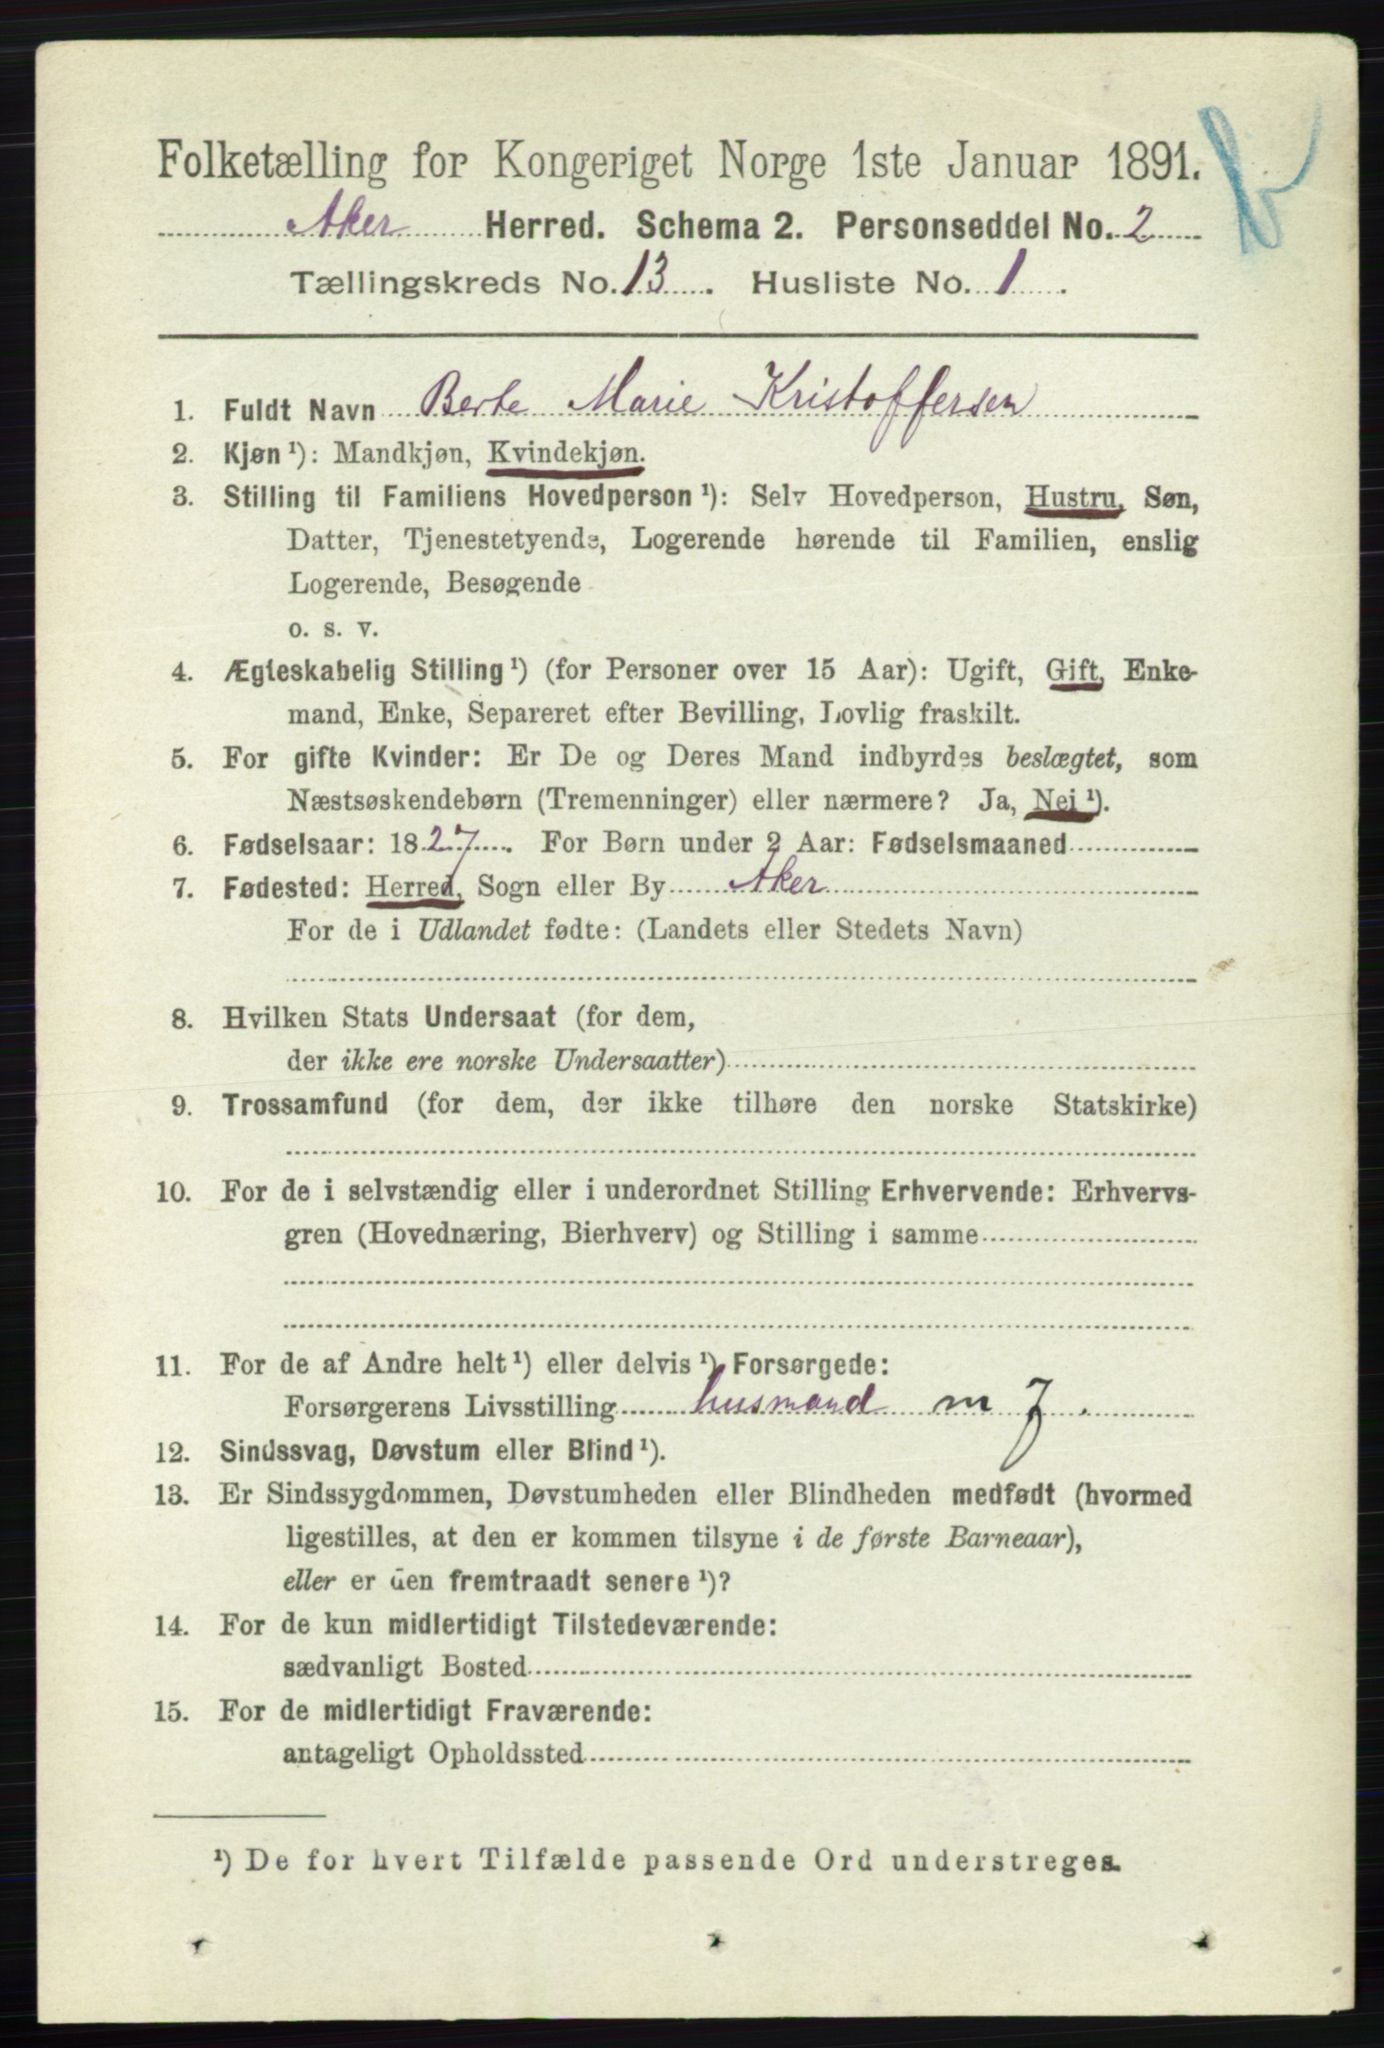 Folketælling for Kongeriget Norge 1ste Januar 1891.
Aker Herred. Schema 2. Personseddel No. 2
Tællingskreds No. 13. Husliste No. 1.
1. Fuldt Navn Berte Marie Kristoffersen
2. Kjøn ¹): Mandkjøn, Kvindekjøn.
3. Stilling til Familiens Hovedperson ¹): Selv Hovedperson, Hustru, Søn,
Datter, Tjenestetyende, Logerende hørende til Familien, enslig
Logerende, Besøgende
o. s. v.
4. Ægteskabelig Stilling ¹) (for Personer over 15 Aar): Ugift, Gift, Enke-
mand, Enke, Separeret efter Bevilling, Lovlig fraskilt.
5. For gifte Kvinder: Er De og Deres Mand indbyrdes beslægtet, som
Næstsøskendebørn (Tremenninger) eller nærmere? Ja, Nei ¹).
6. Fødselsaar: 1827. For Børn under 2 Aar: Fødselsmaaned
7. Fødested: Herred, Sogn eller By Aker
For de i Udlandet fødte: (Landets eller Stedets Navn)
8. Hvilken Stats Undersaat (for dem,
der ikke ere norske Undersaatter)
9. Trossamfund (for dem, der ikke tilhøre den norske Statskirke)
10. For de i selvstændig eller i underordnet Stilling Erhvervende: Erhvervs-
gren (Hovednæring, Bierhverv) og Stilling i samme
11. For de af Andre helt ¹) eller delvis ¹) Forsørgede:
Forsørgerens Livsstilling husmand m J.
12. Sindssvag, Døvstum eller Blind ¹).
13. Er Sindssygdommen, Døvstumheden eller Blindheden medfødt (hvormed
ligestilles, at den er kommen tilsyne i de første Barneaar),
eller er den fremtraadt senere ¹)?
14. For de kun midlertidigt Tilstedeværende:
sædvanligt Bosted
15. For de midlertidigt Fraværende:
antageligt Opholdssted
¹) De for hvert Tilfælde passende Ord understreges.